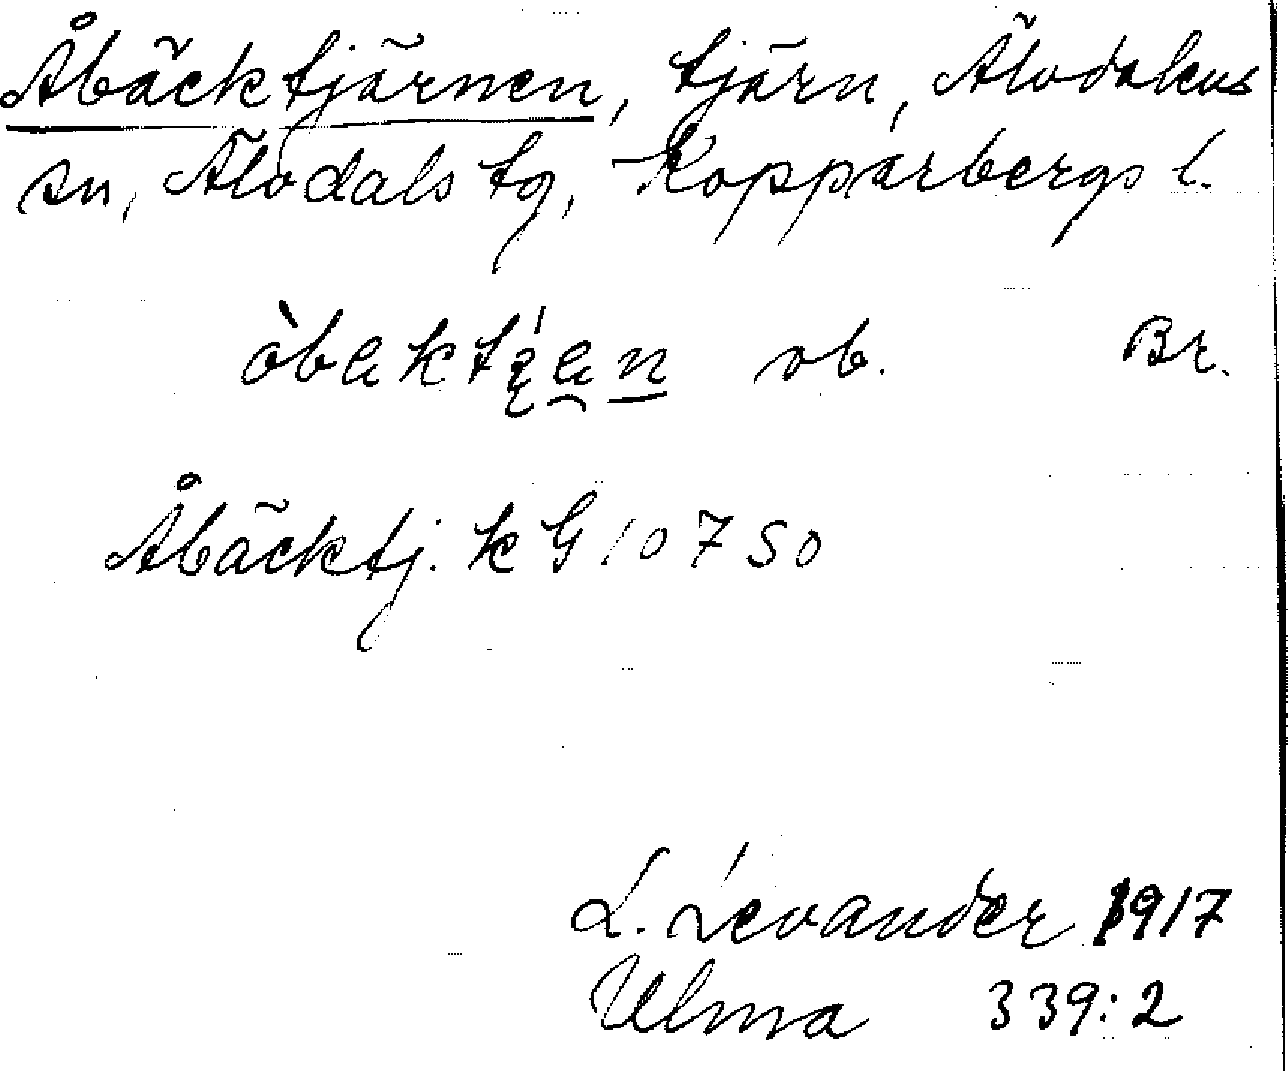 Åbäcktjärnen, tjärn, Älvdalens
sn, Älvdals tg, Kopparbergs l.
ob. Br.
Åbäcktj. k G 10750
L. Levander 1917
Ulma 339:2